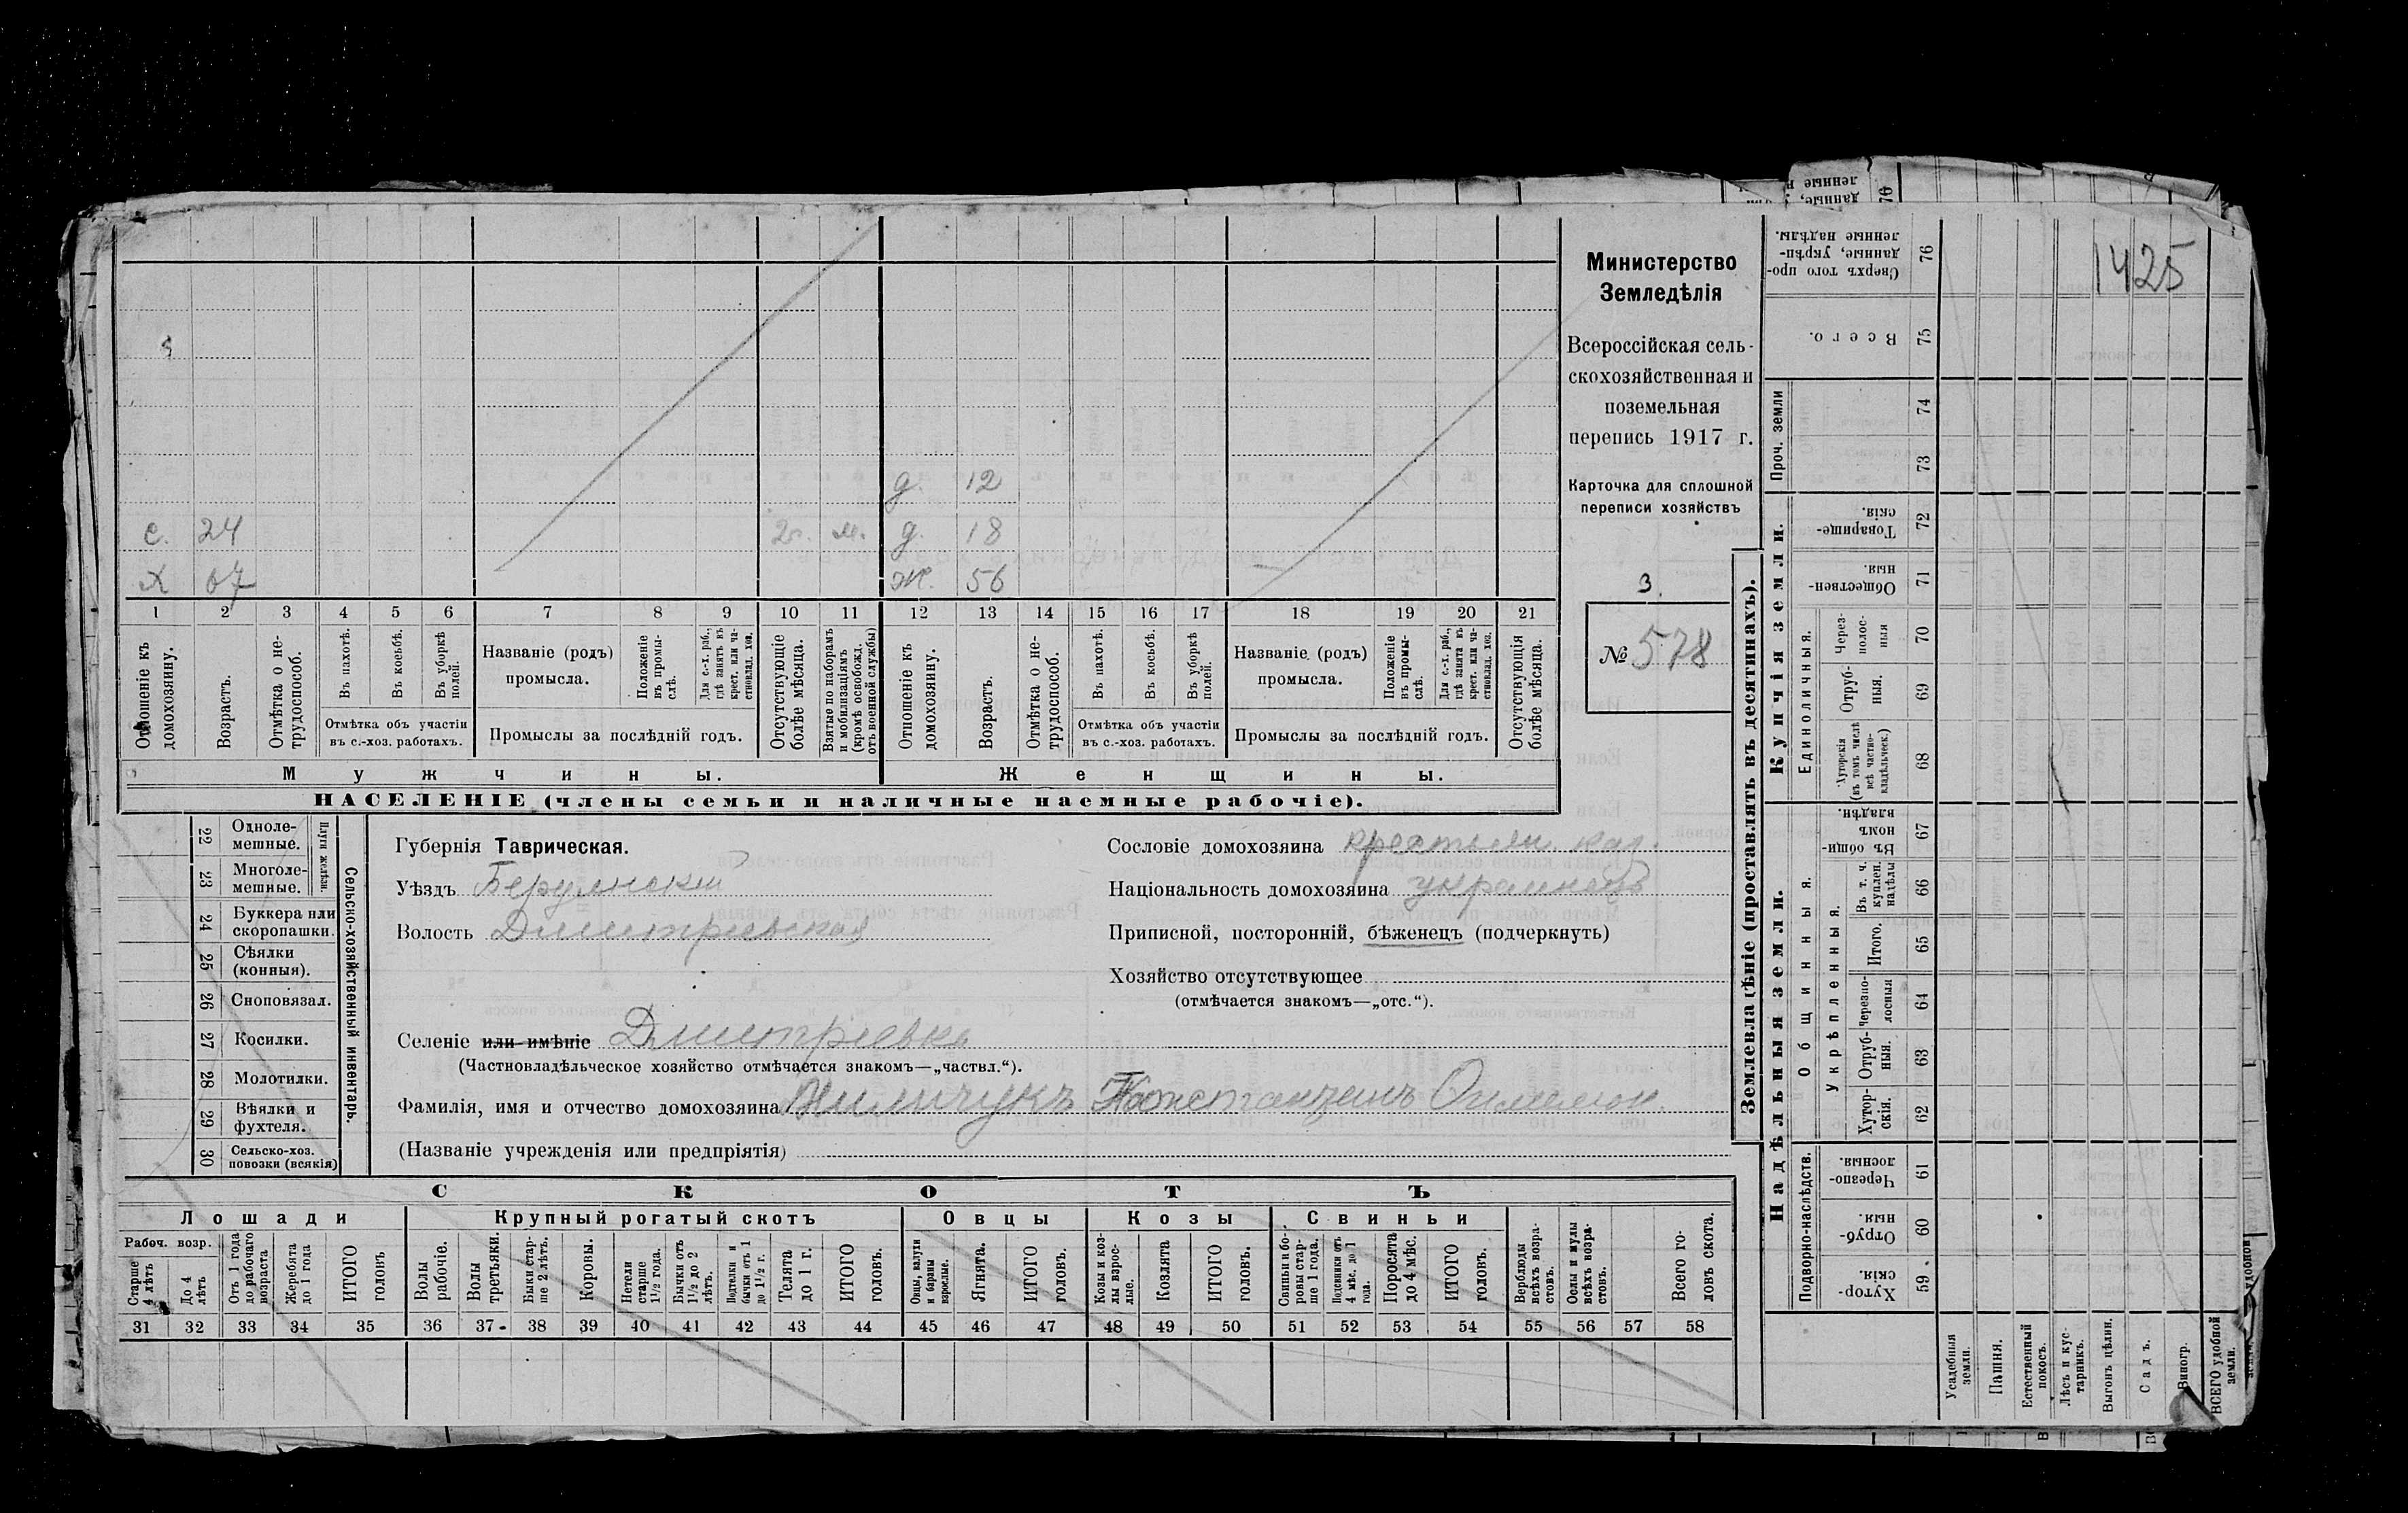 1425
Министерство
Земледѣлія
Всероссійская сель-
скохозяйственная и
поземельная
перепись 1917 г.
Карточка для сплошной
переписи хозяйствъ
3.
№ 578
д. 12
с. 24 2г. м. д. 18
х 67 ж. 56
1 2 3 4 5 6 7 8 9 10 11 12 13 14 15 16 17 18 19 20 21
Отношеніе къ домохозяину.
Возрастъ.
Отмѣтка о не-трудоспособ.
Въ пахотѣ.
Въ косьбѣ.
Въ уборкѣ полей.
Отмѣтка объ участіи
въ с.-хоз. работахъ.
Названіе (родъ)
промысла.
Положеніе въ промы-слѣ.
Для с.-х. раб., гдѣ занятъ въ крест. или ча-стновлад. хоз.
Промыслы за послѣдній годъ.
Отсутствующіе болѣе мѣсяца.
Взятые по наборамъ и мобилизаціямъ (кромѣ освобожд. отъ военной службы)
Отношеніе къ домохозяину.
Возрастъ.
Отмѣтка о не-трудоспособ.
Въ пахотѣ.
Въ косьбѣ.
Въ уборкѣ полей.
Отмѣтка объ участіи
въ с.-хоз. работахъ.
Названіе (родъ)
промысла.
Положеніе въ промы-слѣ.
Для с.-х. раб., гдѣ занята въ крест. или ча-стновлад. хоз.
Промыслы за послѣдній годъ.
Отсутствующія болѣе мѣсяца.
Мужчины. Женщины.
НАСЕЛЕНІЕ (члены семьи и наличные наемные рабочіе).
22 Одноле-мешные.
23 Многоле-мешные.
Плуги желѣзн.
24 Буккера или скоропашки.
25 Сѣялки (конныя).
26 Сноповязал.
27 Косилки.
28 Молотилки.
29 Вѣялки и фухтеля.
30 Сельско-хоз. повозки (всякія)
Сельско-хозяйственный инвентарь.
Губернія Таврическая.
Уѣздъ Бердянскій
Волость Дмитріевская
Сословіе домохозяина крестьян.
Національность домохозяина украинецъ
Приписной, посторонній, бѣженецъ (подчеркнуть)
Хозяйство отсутствующее
(отмѣчается знакомъ—„отс.“).
Селеніе или имѣніе Дмитріевка
(Частновладѣльческое хозяйство отмѣчается знакомъ—„частвл.“).
Фамилія, имя и отчество домохозяина Константинъ
(Названіе учрежденія или предпріятія)
СКОТЪ
Лошади Крупный рогатый скотъ Овцы Козы Свиньи
Рабоч. возр.
Старше 4 лѣтъ
До 4 лѣтъ
Отъ 1 года до рабочаго возраста
Жеребята до 1 года
ИТОГО головъ
Волы рабочіе.
Волы третьяки.
Быки стар-ше 2 лѣтъ.
Коровы.
Нетели старше 1½ года.
Бычки отъ 1½ до 2 лѣтъ.
Подтелки и бычки отъ 1 до 1½ г.
Телята до 1 г.
ИТОГО головъ.
Овцы, валухи и бараны взрослые.
Ягнята.
ИТОГО головъ.
Козы и коз-лы взрос-лые.
Козлята
ИТОГО головъ.
Свиньи и бо-ровы стар-ше 1 года.
Подсвинки отъ 4 мѣс. до 1 года.
Поросята до 4 мѣс.
ИТОГО головъ.
Верблюды всѣхъ возра-стовъ.
Ослы и мулы всѣхъ возра-стовъ.
Всего го-ловъ скота.
31 32 33 34 35 36 37 38 39 40 41 42 43 44 45 46 47 48 49 50 51 52 53 54 55 56 57 58
Землевладѣніе (проставлять въ десятинахъ).
Надѣльныя земли. Купчія земли. Проч. земли
Подворно-наслѣдств.
Общинныя.
Укрѣпленныя.
Единоличныя.
Сверхъ того про-данные, укрѣп-ленные надѣлы. 76
Всего. 75
74
73
Товарище-скія. 72
Обществен-ныя. 71
Через-полос-ныя 70
Отруб-ныя. 69
Хуторскія (въ томъ числѣ всѣ частно-владѣльческ.) 68
Въ общи-номъ владѣн. 67
Въ т. ч. куплен. надѣлы 66
Итого. 65
Черезпо-лосныя 64
Отруб-ныя. 63
Хутор-скія. 62
Черезпо-лосныя. 61
Отруб-ныя. 60
Хутор-скія. 59
Усадебныя земли.
Пашня.
Естественный покосъ.
Лѣсъ и кус-тарникъ.
Выгонъ цѣлин.
Садъ.
Виногр.
ВСЕГО удобной земли.